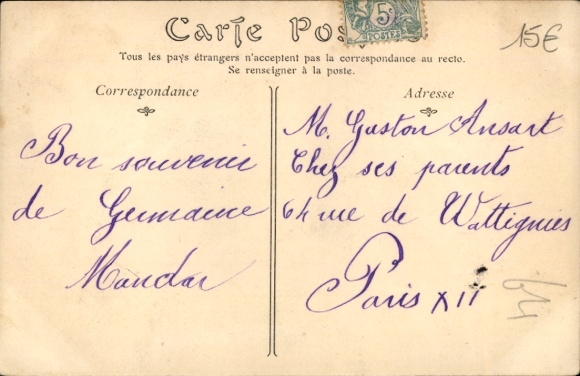 Carte Pos
5c
POSTES
15€
Tous les pays étrangers n'acceptent pas la correspondance au recto.
Se renseigner à la poste.
Correspondance
Bon souvenir
de Germaine
Mandar
Adresse
M. Gaston Ansart
Chez ses parents
64 rue de Wattignies
Paris XII